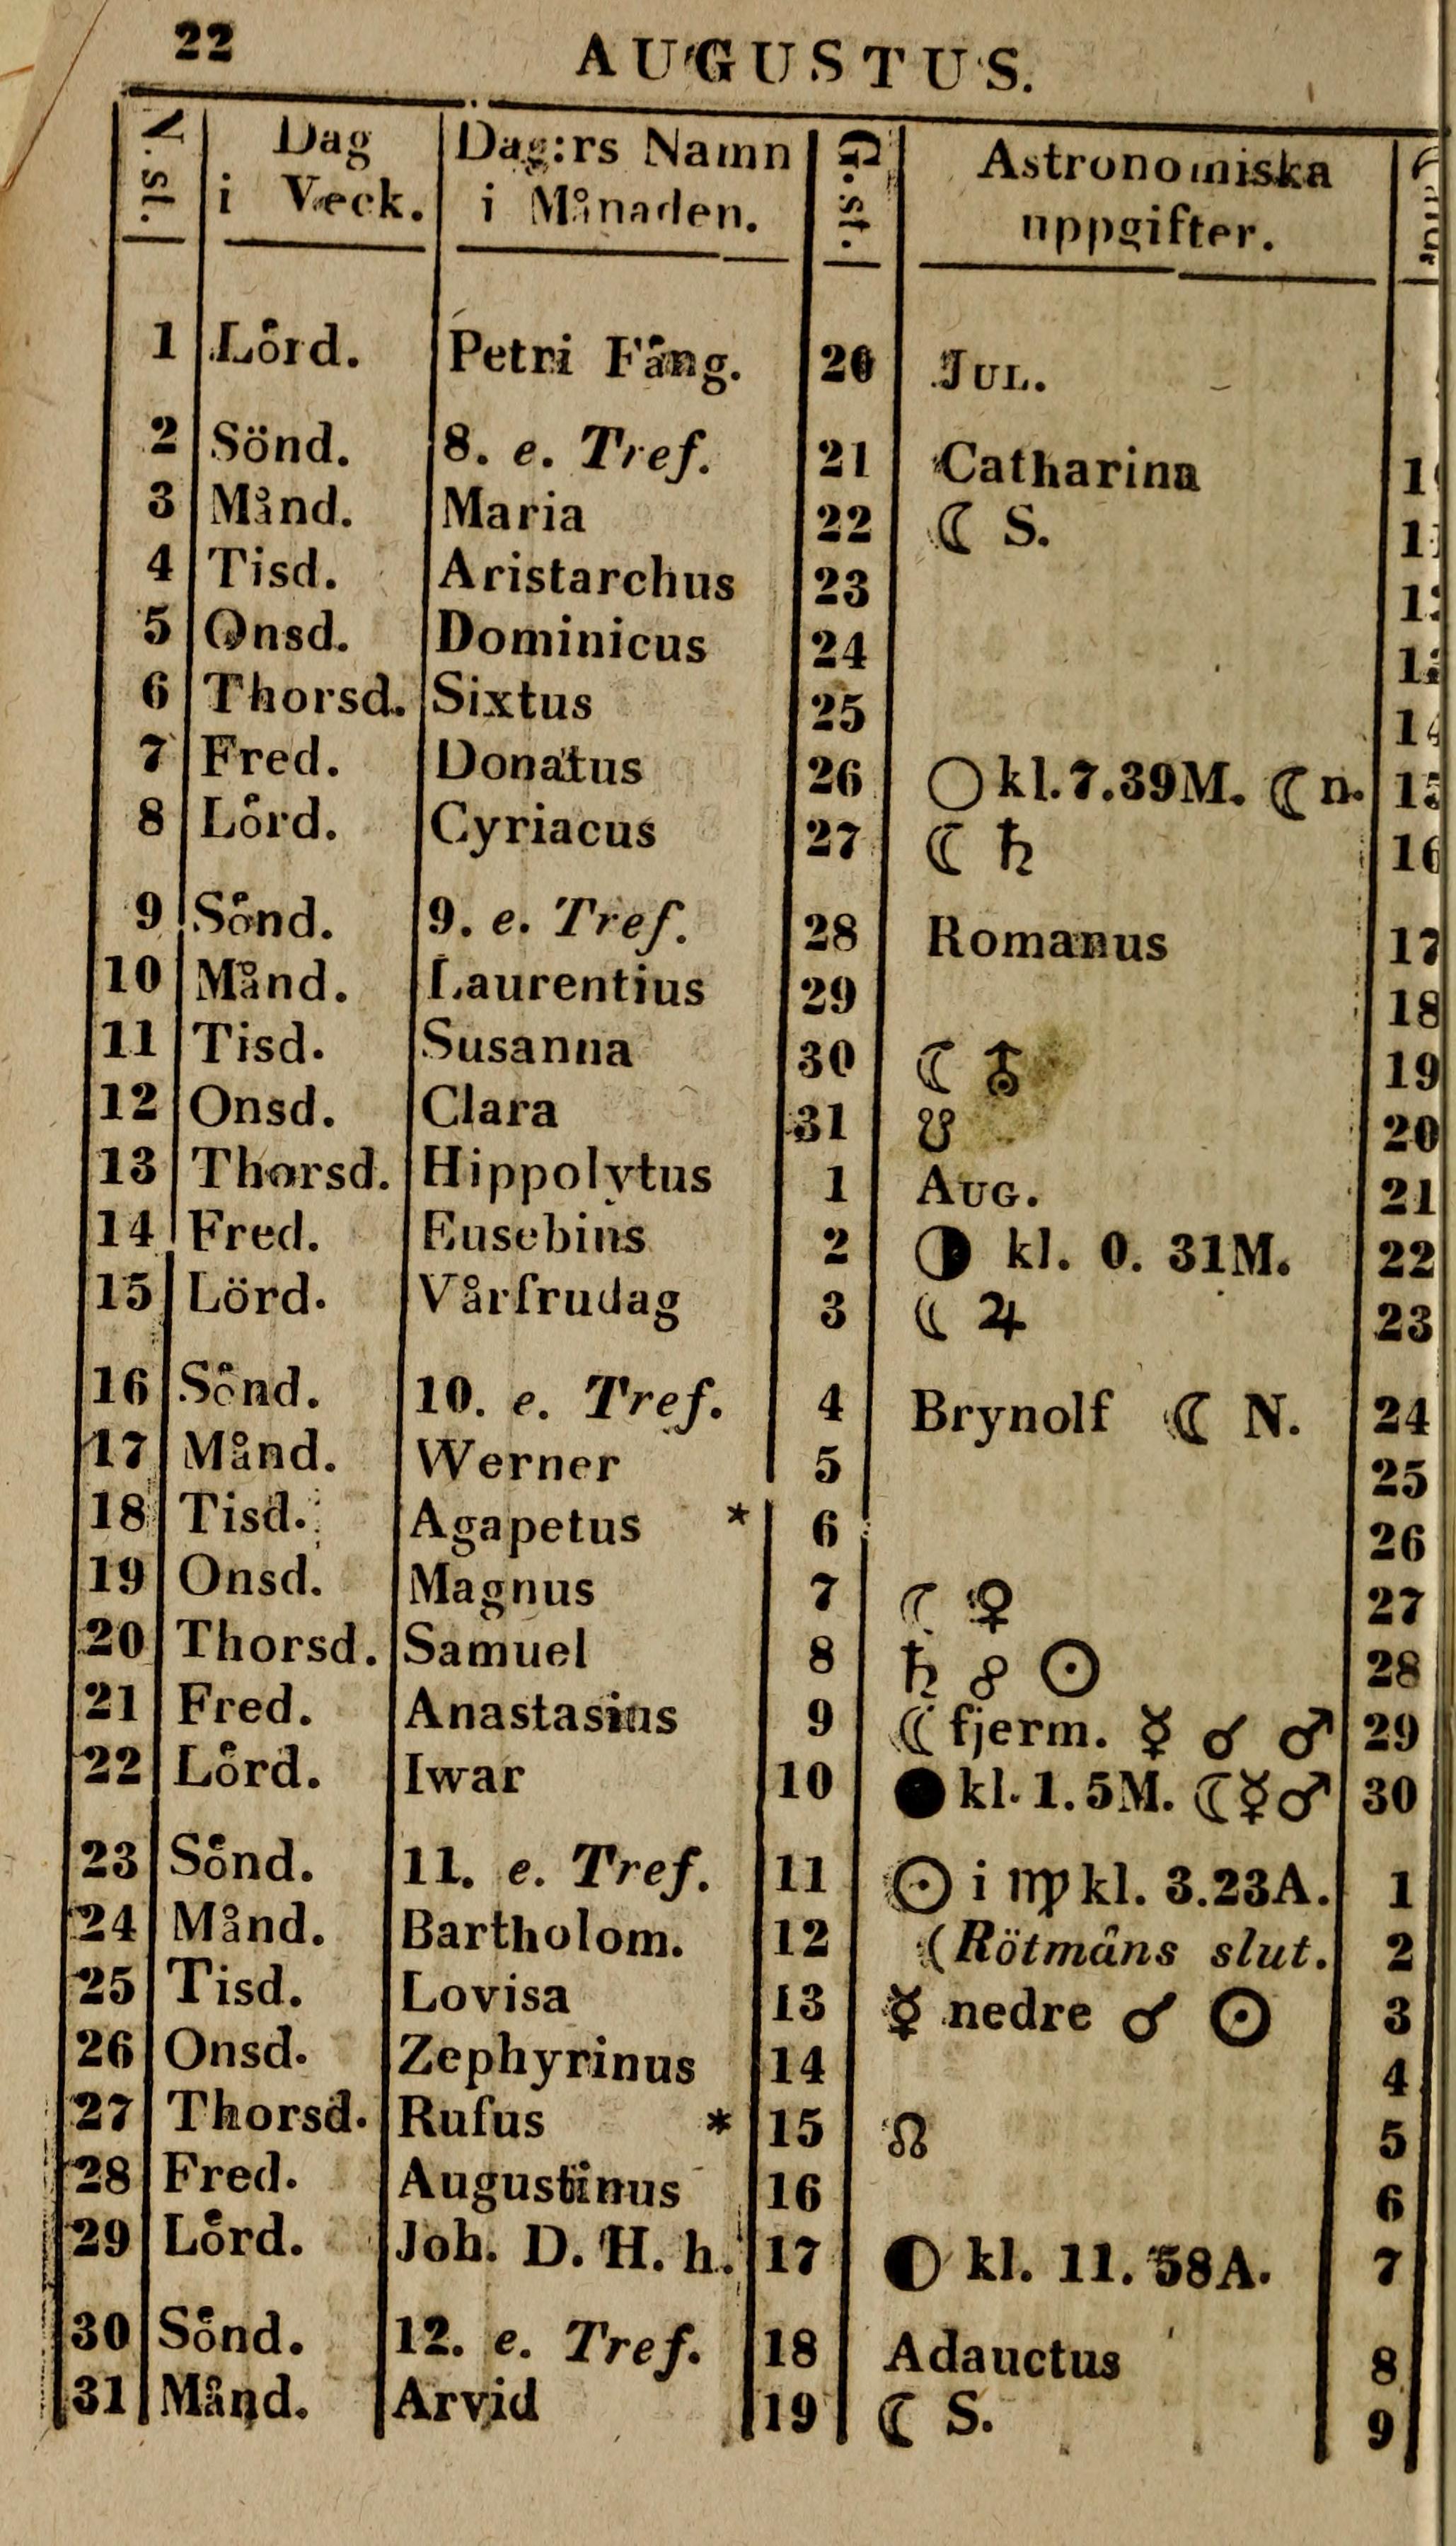 22 AUGUSTUS.
N. st. Dag Dag:rs Namn G. st. Astronomiska
i Veck. i Månaden. uppgifter.
1 Lörd. Petri Fång. 20 JUL.
2 Sönd. 8. e. Tref. 21 Catharina
3 Månd. Maria 22 ☾ S.
4 Tisd. Aristarchus 23
5 Onsd. Dominicus 24
6 Thorsd. Sixtus 25
7 Fred. Donatus 26 ○ kl. 7.39M. ☾ n.
8 Lörd. Cyriacus 27 ☾ ♄ 16
9 Sönd. 9. e. Tref. 28 Romanus 17
10 Månd. Laurentius 29 18
11 Tisd. Susanna 30 ☾ ⛢ 19
12 Onsd. Clara 31 ☋ 20
13 Thorsd. Hippolytus 1 AUG. 21
14 Fred. Eusebius 2 ◑ kl. 0. 31M. 22
15 Lörd. Vårfrudag 3 ☾ ♃ 23
16 Sönd. 10. e. Tref. 4 Brynolf ☾ N. 24
17 Månd. Werner 5 25
18 Tisd. Agapetus * 6 26
19 Onsd. Magnus 7 ☾ ♀ 27
20 Thorsd. Samuel 8 ♄ ☍ ☉ 28
21 Fred. Anastasius 9 ☾ fjerm. ☿ ☌ ♂ 29
22 Lörd. Iwar 10 ● kl. 1. 5M. ☾☿♂ 30
23 Sönd. 11. e. Tref. 11 ☉ i ♍ kl. 3.23A. 1
24 Månd. Bartholom. 12 (Rötmåns slut. 2
25 Tisd. Lovisa 13 ☿ nedre ☌ ☉ 3
26 Onsd. Zephyrinus 14 4
27 Thorsd. Rufus * 15 ☊ 5
28 Fred. Augustinus 16 6
29 Lörd. Joh. D. H. h. 17 ◐ kl. 11. 58A. 7
30 Sönd. 12. e. Tref. 18 Adauctus 8
31 Månd. Arvid 19 ☾ S. 9